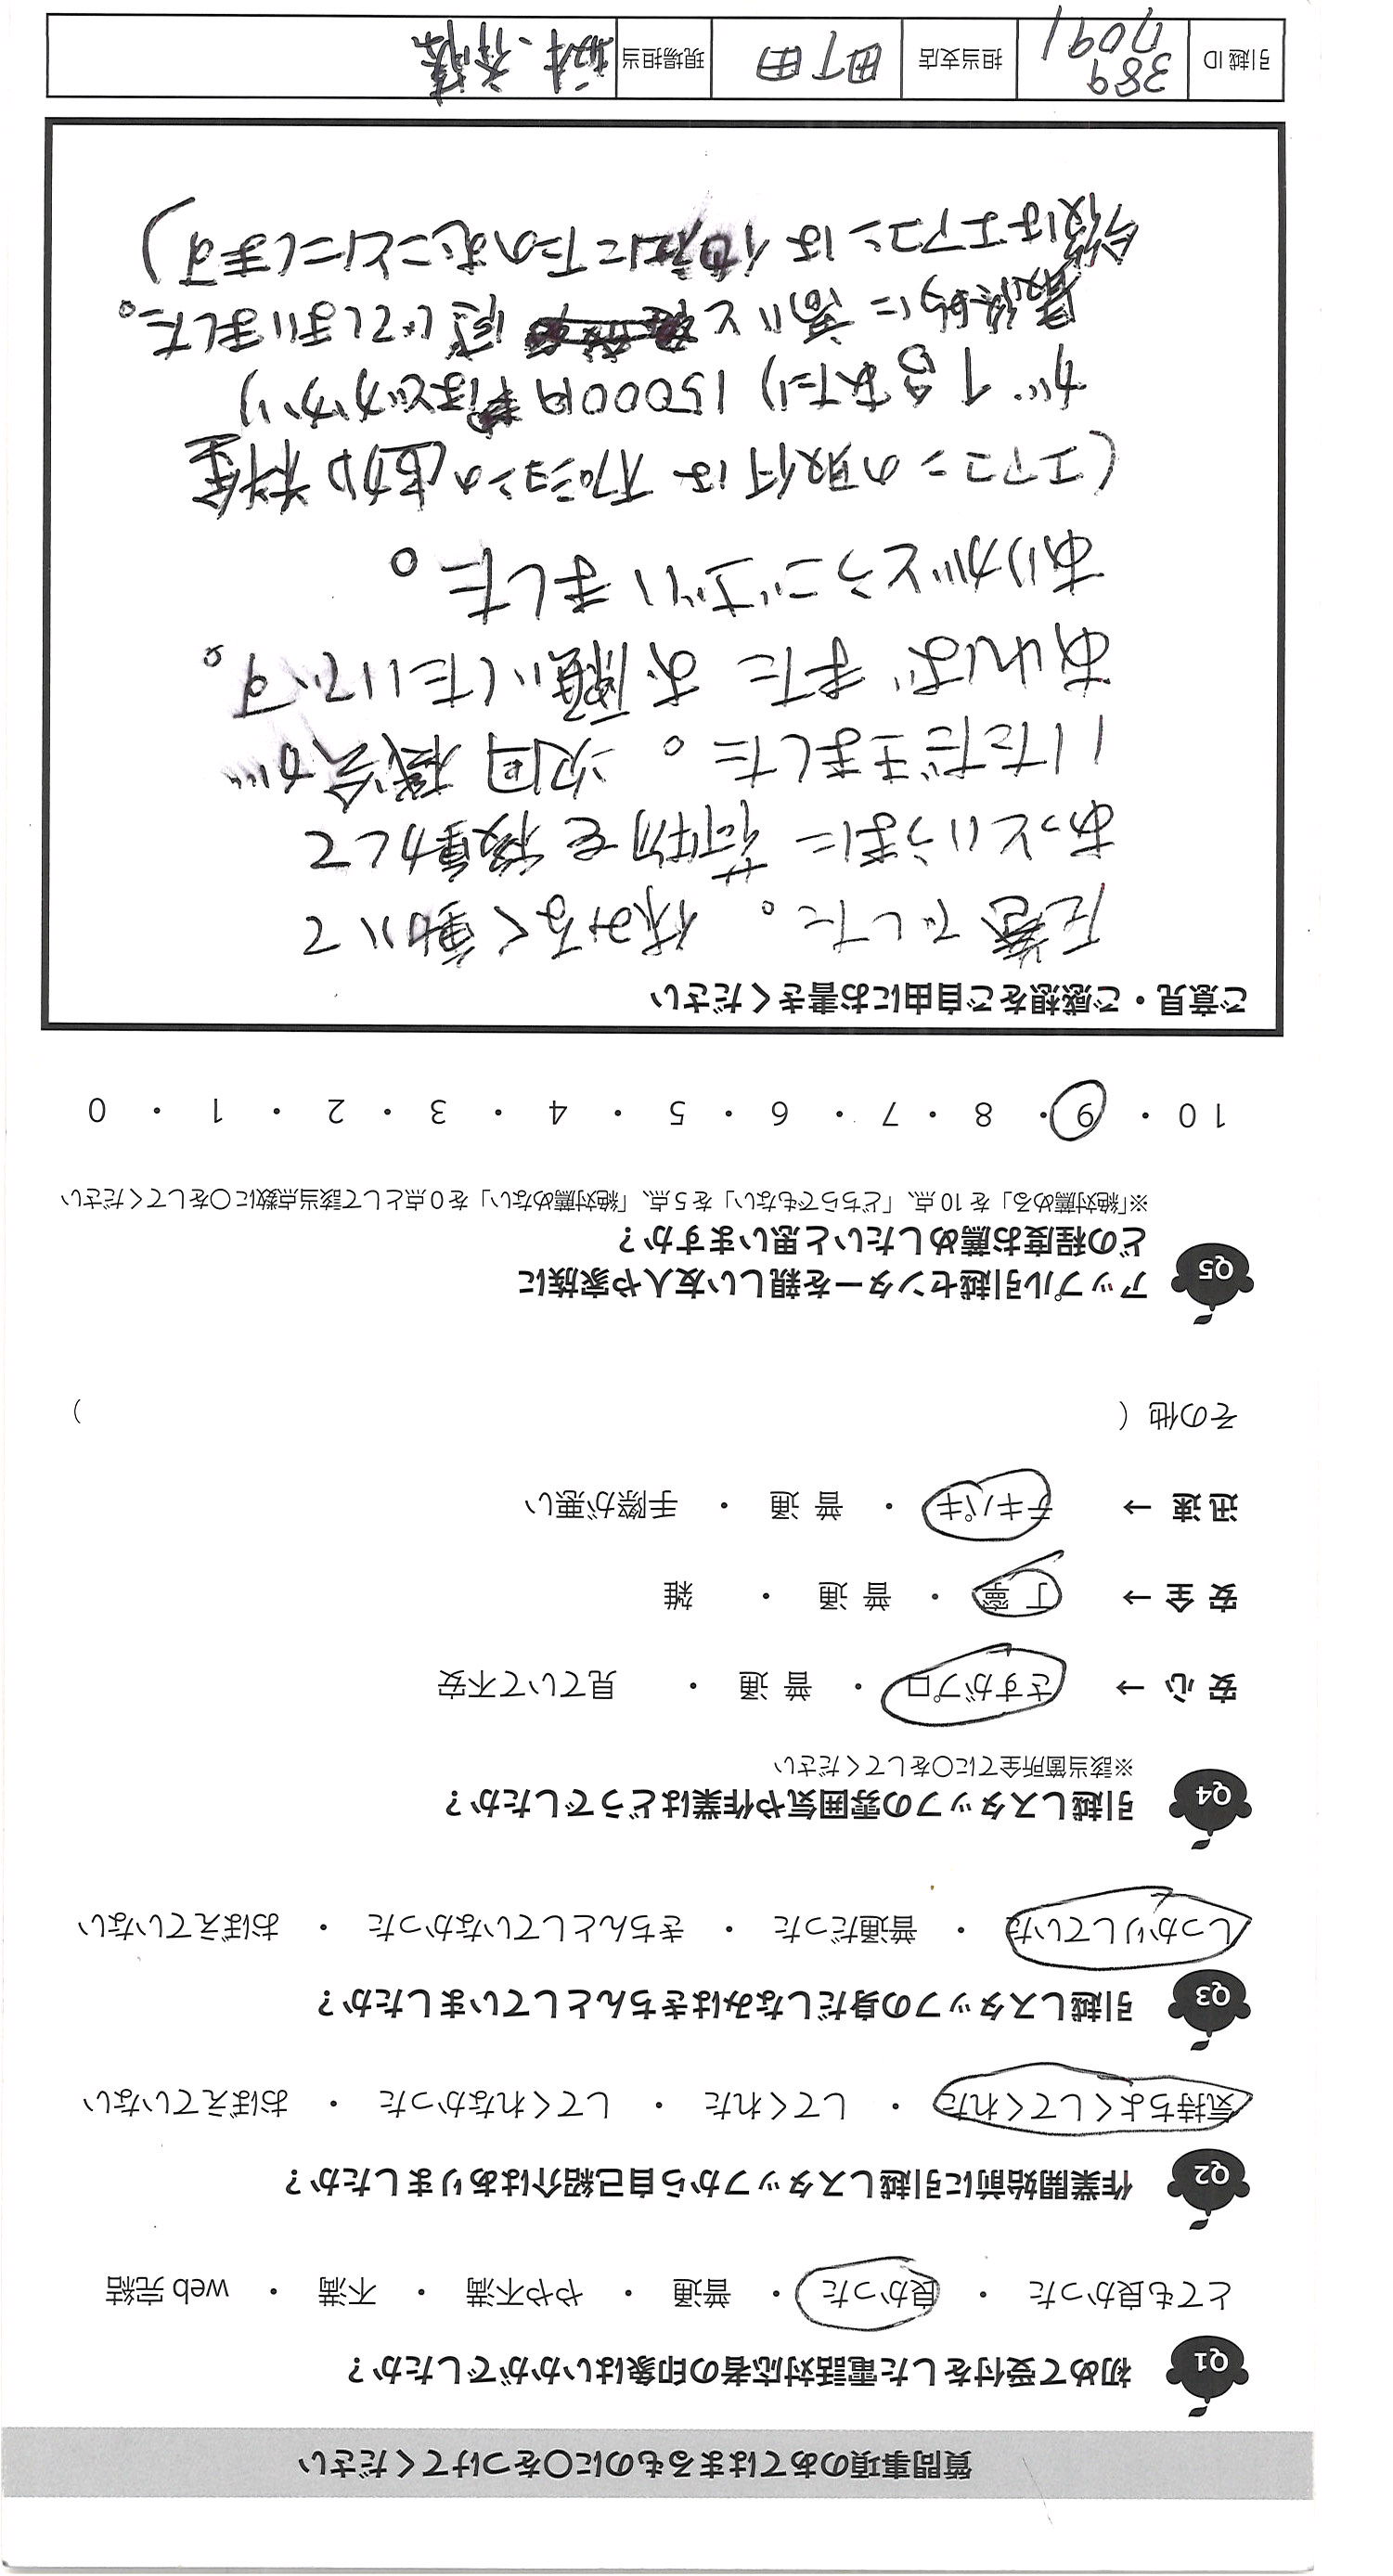 質問事項のあてはまるものに〇をつけてください
Q1 初めて受付をした電話対応者の印象はいかがでしたか？
とても良かった ・ 良かった ・ 普通 ・ やや不満 ・ 不満 ・ web 完結
Q2 作業開始前に引越しスタッフから自己紹介はありましたか？
気持ちよくしてくれた ・ してくれた ・ してくれなかった ・ おぼえていない
Q3 引越しスタッフの身だしなみはきちんとしていましたか？
しっかりしていた ・ 普通だった ・ きちんとしていなかった ・ おぼえていない
Q4 引越しスタッフの雰囲気や作業はどうでしたか？
※該当箇所全てに〇をしてください
安心 → さすがプロ ・ 普通 ・ 見ていて不安
安全 → 丁寧 ・ 普通 ・ 雑
迅速 → テキパキ ・ 普通 ・ 手際が悪い
その他 （ ）
Q5 アップル引越センターを親しい友人や家族に
どの程度お薦めしたいと思いますか？
※「絶対薦める」を 10 点、「どちらでもない」を 5 点、「絶対薦めない」を 0 点として該当点数に〇をしてください
10 ・ 9 ・ 8 ・ 7 ・ 6 ・ 5 ・ 4 ・ 3 ・ 2 ・ 1 ・ 0
ご意見・ご感想をご自由にお書きください
圧巻でした。休みなく動いて
あっというまに荷物を移動かして
いただきました。次回機会が
あればまたお願いしたいです。
ありがとうございました。
(エアコンの取付はオプションの追加料金
が1台あたり15000円ほどかかり
最終的に高いと感じてしまいました。
今後はエアコンは他社にたのむことにします)
引越 ID 389 7091 担当支店 町田 現場担当 斉藤